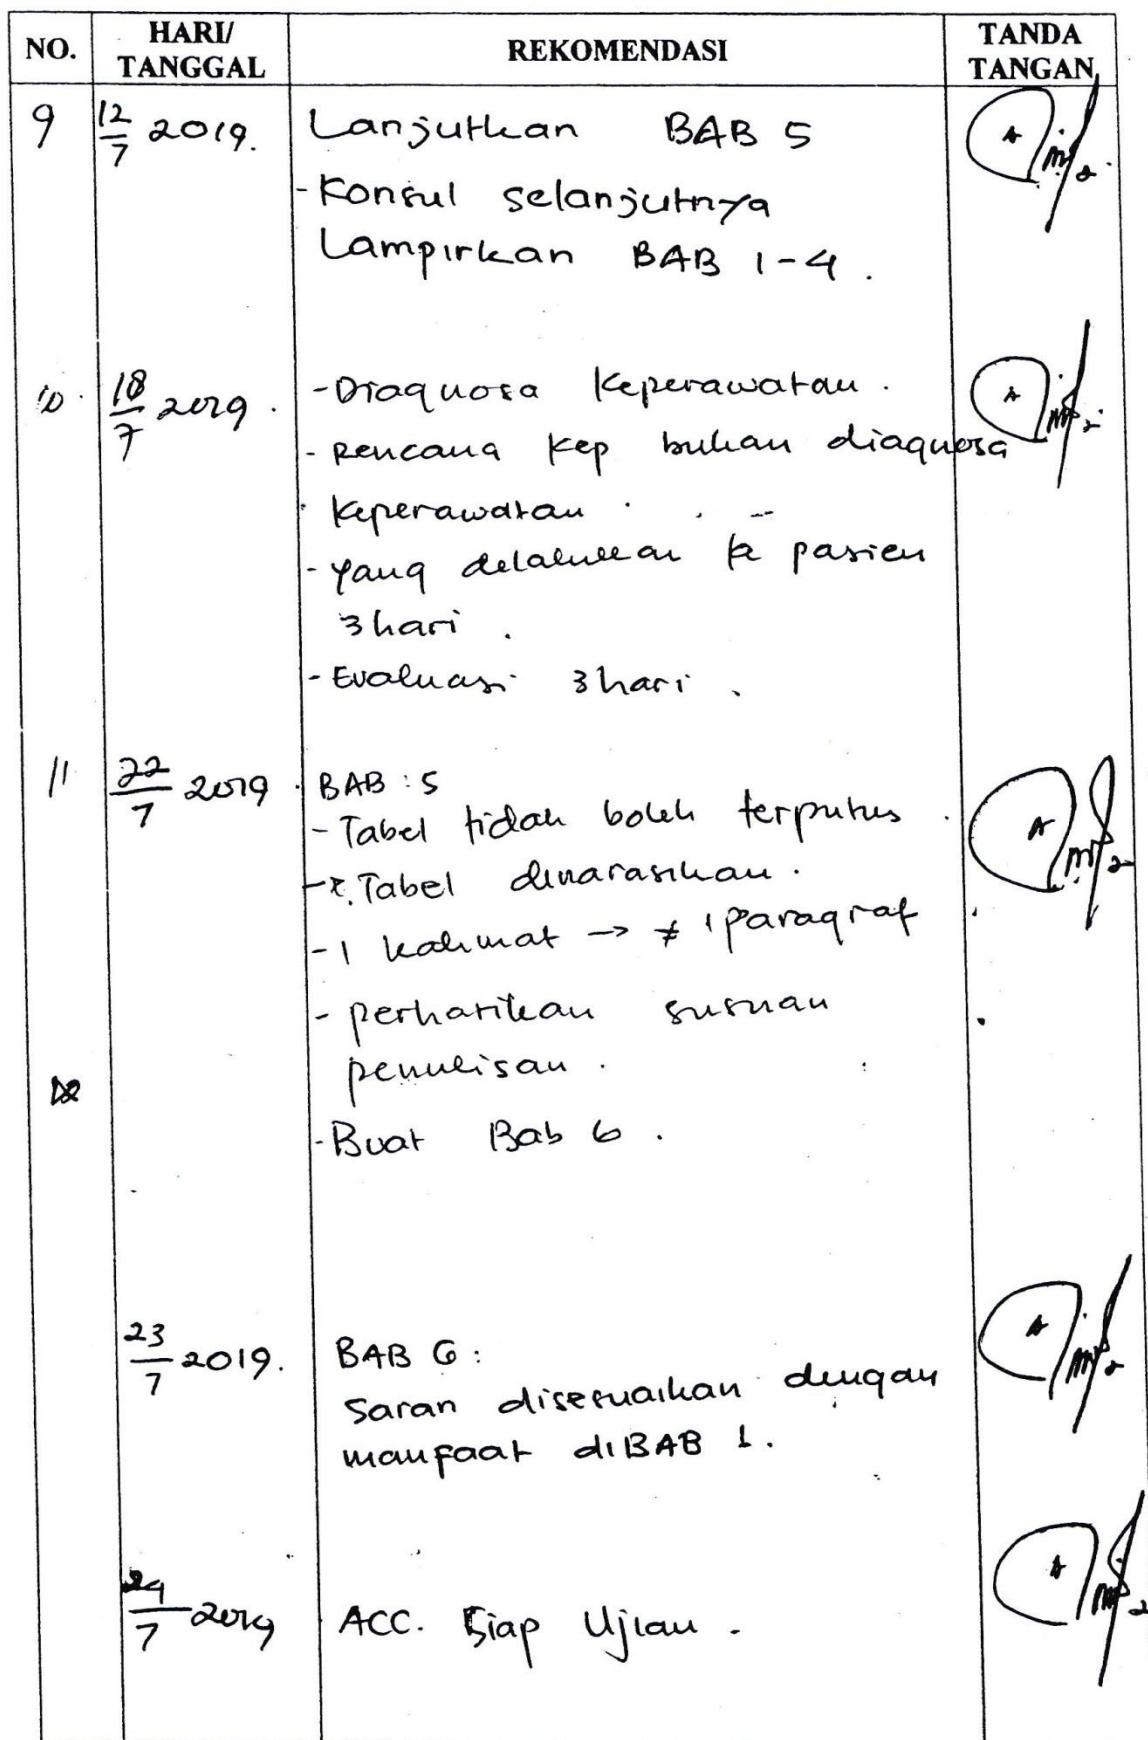 NO. HARI/ TANGGAL REKOMENDASI TANDA TANGAN
9 12/7 2019. Lanjutkan BAB 5
- Konsul selanjutnya
Lampirkan BAB 1-4.
10. 18/7 2019. - Diagnosa Keperawatan.
- Rencana Kep bukan diagnosa
Keperawatan.
- Yang dilakukan ke pasien
3 hari.
- Evaluasi 3 hari.
11 22/7 2019 BAB : 5
- Tabel tidak boleh terputus.
- Tabel dinarasikan.
- 1 kalimat → ≠ 1 paragraf
- perhatikan susunan
penulisan.
- Buat Bab 6.
23/7 2019. BAB 6:
Saran disesuaikan dengan
manfaat diBAB 1.
24/7 2019 ACC. Siap Ujian.